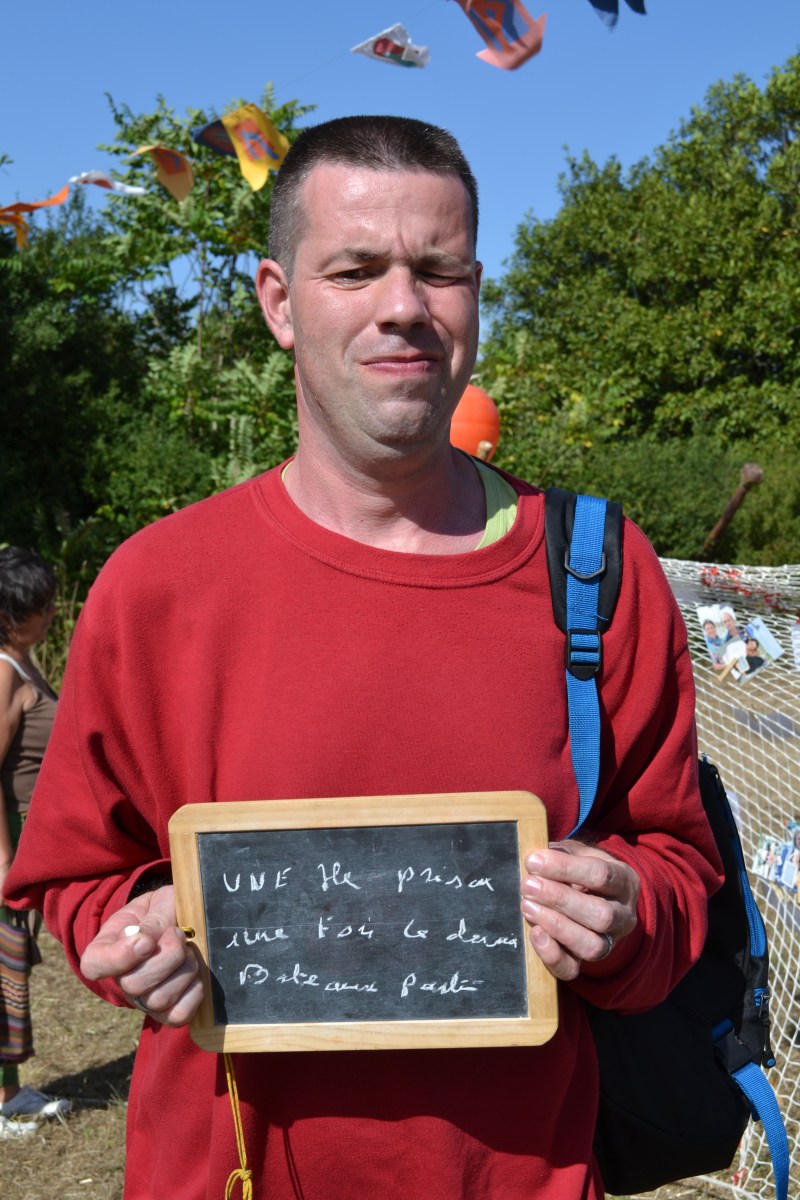 UNE Ile prison
une Fois le dernier
Bateaux Partie